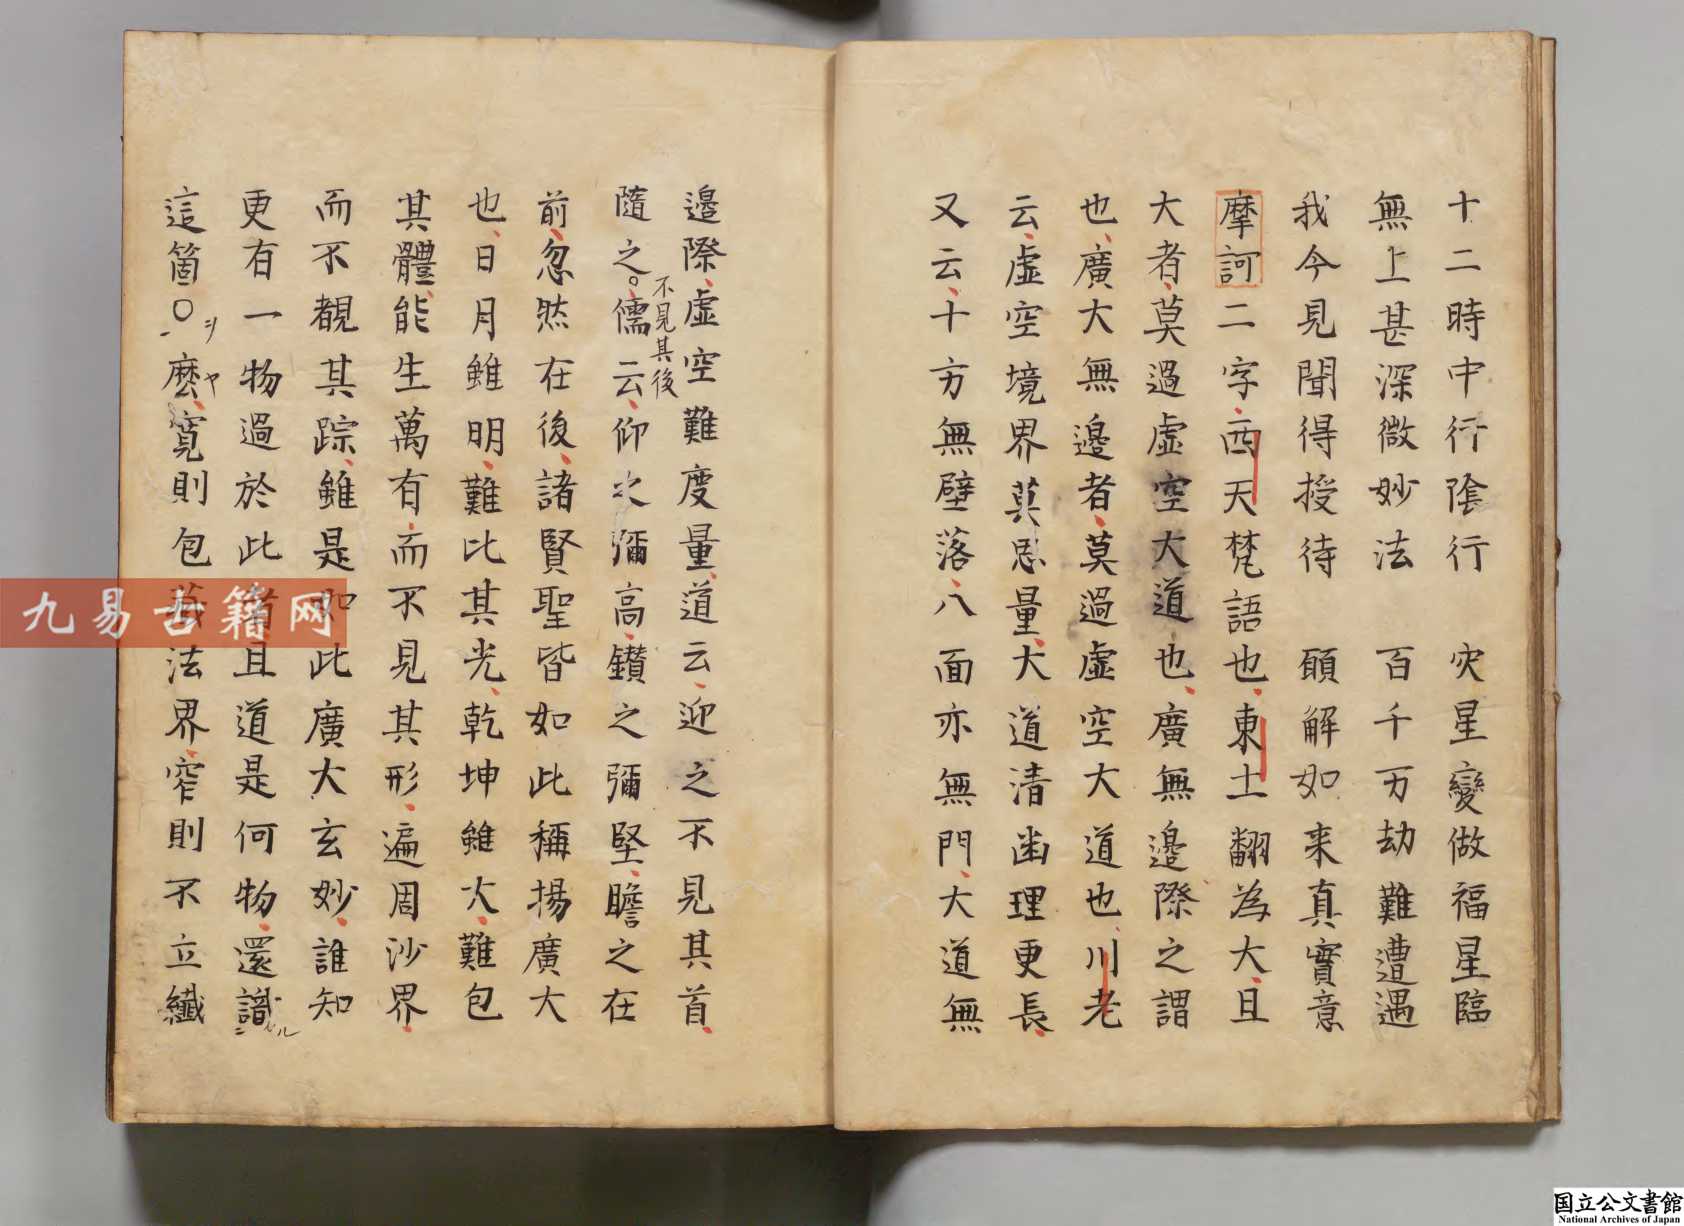 十二時中行陰行　灾星變做福星臨
無上甚深微妙法　百千万劫難遭遇
我今見聞得授待　願解如来真實意
摩訶二字西天梵語也東土翻為大且
大者莫過虛空大道也廣無邉際之謂
也廣大無邉者莫過虛空大道也川老
云虛空境界莫思量大道清幽理更長
又云十方無壁落八面亦無門大道無
邉際虛空難度量道云迎之不見其首
隨之不見其後儒云仰之彌高鑚之彌堅瞻之在
前忽然在後諸賢聖皆如此稱揚廣大
也日月雖明難比其光乾坤雖大難包
其體能生萬有而不見其形遍周沙界
而不覩其踪雖是如此廣大玄妙誰知
更有一物過於此者且道是何物還識
セル
這箇〇麽寛則包藏法界窄則不立纖
ヲ
ヤ
九易古籍网
国立公文書館
National Archives of Japan